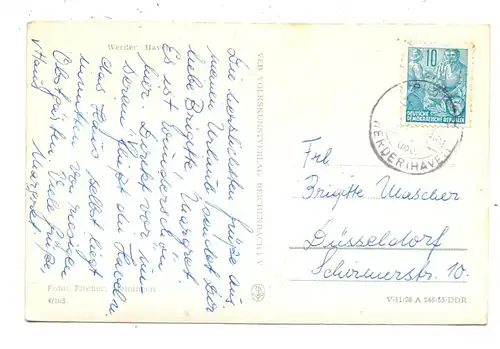 Werder Havel
Die herzlichsten Grüße aus
meinem Urlaub sendet Dir
liebe Brigitte, Margret.
Es ist wunderschön
hier. Direkt vor un-
serem fließt die Havel
das Haus selbst liegt
inmitten von riesigen
Obstgärten. Viele Grüße,
Margret
Haus
Foto: Fischer,
4/163
VEB VOLKSKUNSTVERLAG REICHENBACH i. V.
10
DEUTSCHE
DEMOKRATISCHE REPUBLIK
WERDER (HAVEL)
Frl.
Brigitte Mascher
Düsseldorf
Schirmerstr. 10.
V-11/28 A 346-55-DDR